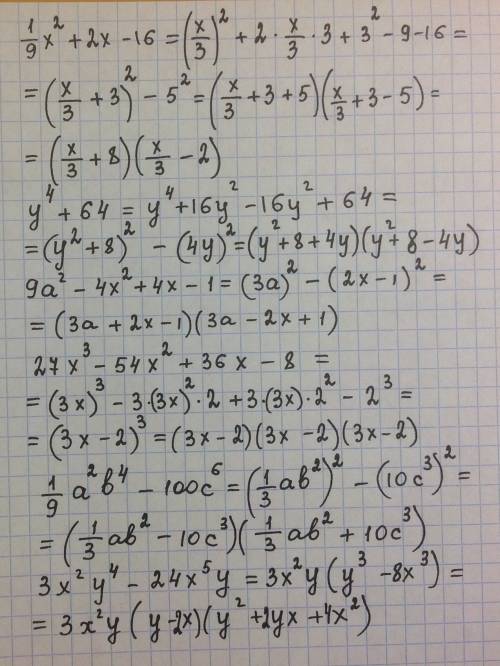 1/9 x² + 2x - 16 = (x/3)² + 2 · x/3 · 3 + 3² - 9 - 16 =
= (x/3 + 3)² - 5² = (x/3 + 3 + 5)(x/3 + 3 - 5) =
= (x/3 + 8)(x/3 - 2)
y⁴ + 64 = y⁴ + 16y² - 16y² + 64 =
= (y² + 8)² - (4y)² = (y² + 8 + 4y)(y² + 8 - 4y)
9a² - 4x² + 4x - 1 = (3a)² - (2x - 1)² =
= (3a + 2x - 1)(3a - 2x + 1)
27x³ - 54x² + 36x - 8 =
= (3x)³ - 3·(3x)²·2 + 3·(3x)·2² - 2³ =
= (3x - 2)³ = (3x - 2)(3x - 2)(3x - 2)
1/9 a²b⁴ - 100c⁶ = (1/3 ab²)² - (10c³)² =
= (1/3 ab² - 10c³)(1/3 ab² + 10c³)
3x²y⁴ - 24x⁵y = 3x²y(y³ - 8x³) =
= 3x²y(y - 2x)(y² + 2yx + 4x²)